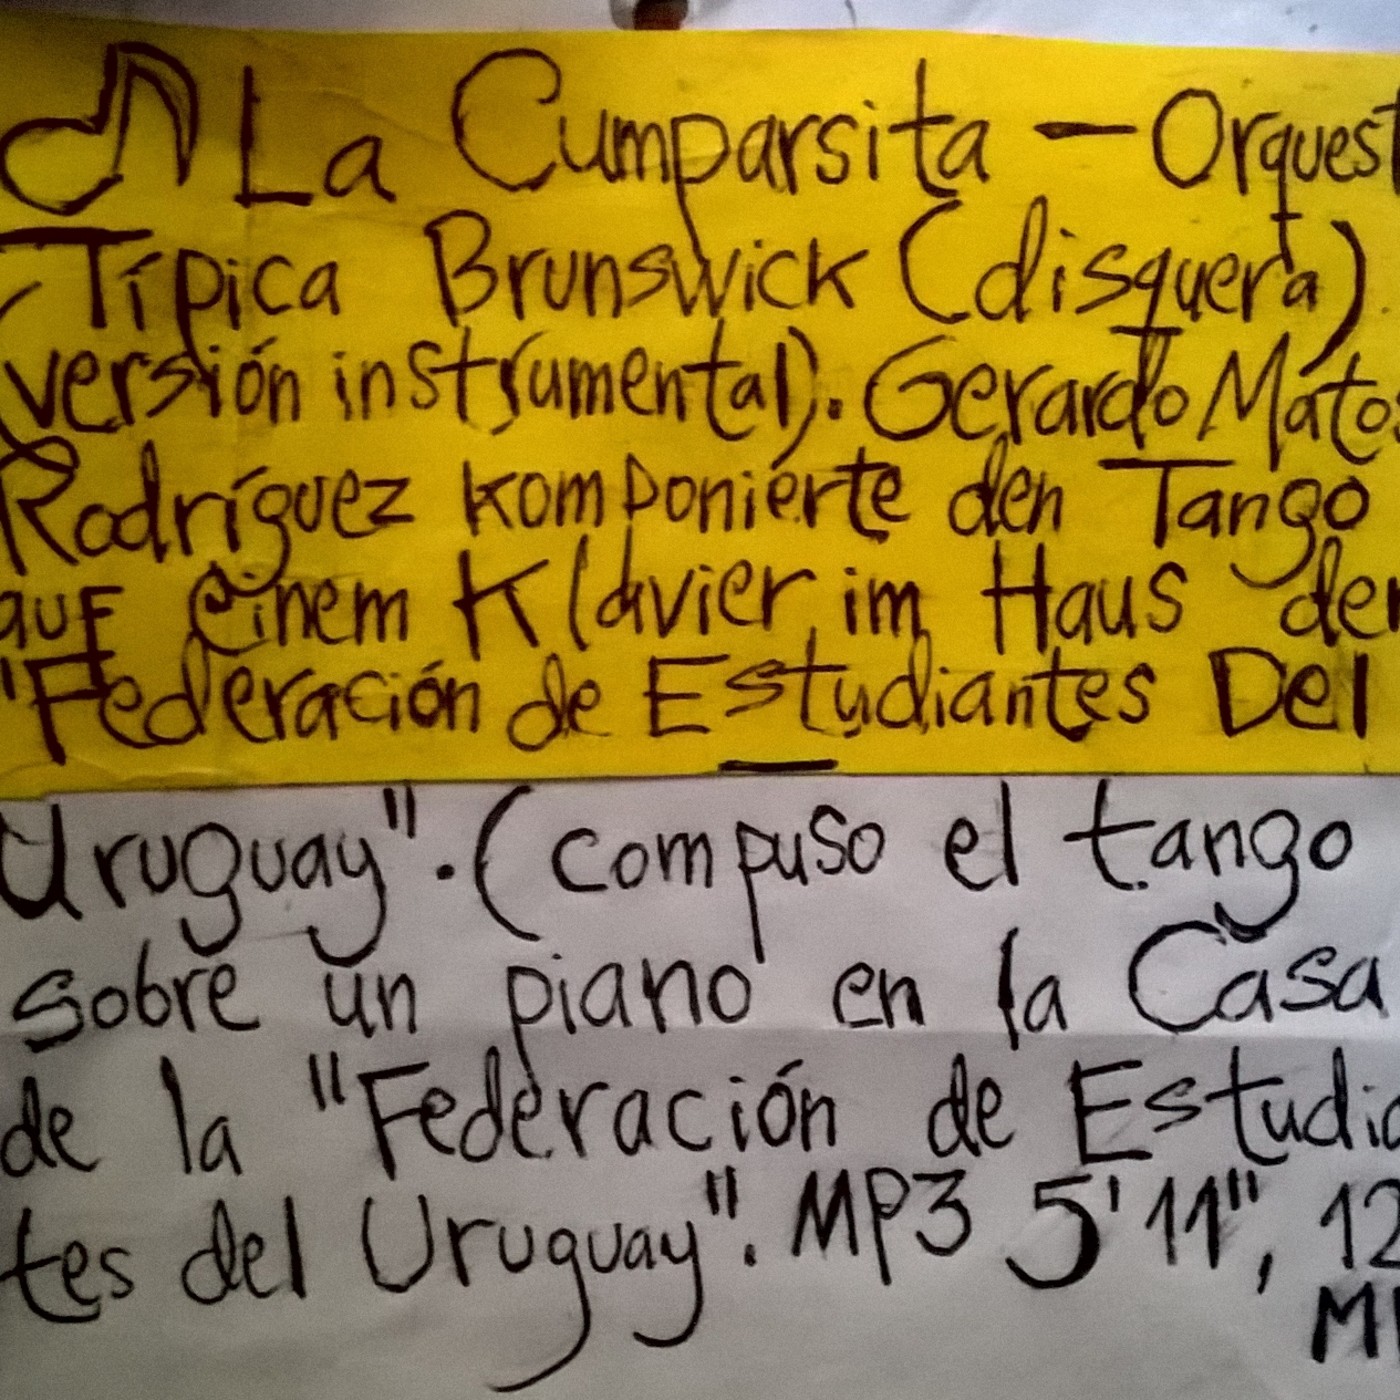 La Cumparsita — Orquest
Típica Brunswick (disquera)
(versión instrumental). Gerardo Matos
Rodríguez komponierte den Tango
auf einem Klavier im Haus der
"Federación de Estudiantes Del
Uruguay". (compuso el tango
sobre un piano en la Casa
de la "Federación de Estudia
tes del Uruguay". MP3 5'11", 12
M